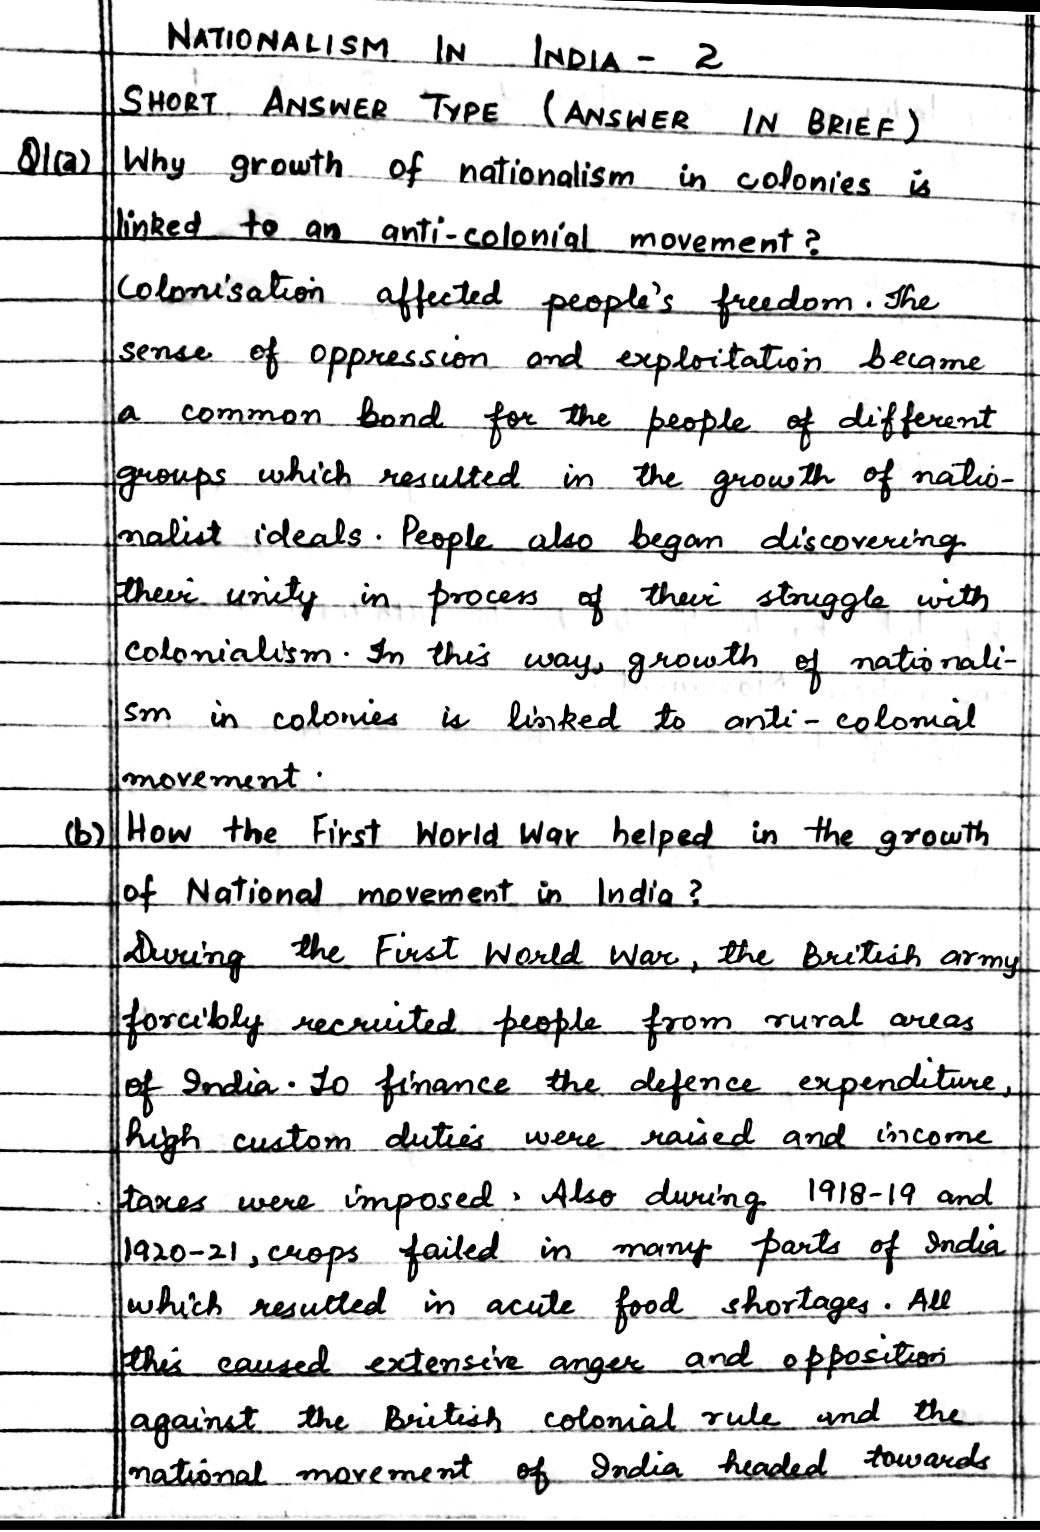 NATIONALISM IN INDIA - 2
SHORT ANSWER TYPE (ANSWER IN BRIEF)
Q1(a) Why growth of nationalism in colonies is
linked to an anti-colonial movement?
Colonisation affected people's freedom. The
sense of oppression and exploitation became
a common bond for the people of different
groups which resulted in the growth of natio-
nalist ideals. People also began discovering
their unity in process of their struggle with
colonialism. In this way, growth of nationali-
sm in colonies is linked to anti-colonial
movement.
(b) How the First World War helped in the growth
of National movement in India?
During the First World War, the British army
forcibly recruited people from rural areas
of India. To finance the defence expenditure,
high custom duties were raised and income
taxes were imposed. Also during 1918-19 and
1920-21, crops failed in many parts of India
which resulted in acute food shortages. All
this caused extensive anger and opposition
against the British colonial rule and the
national movement of India headed towards